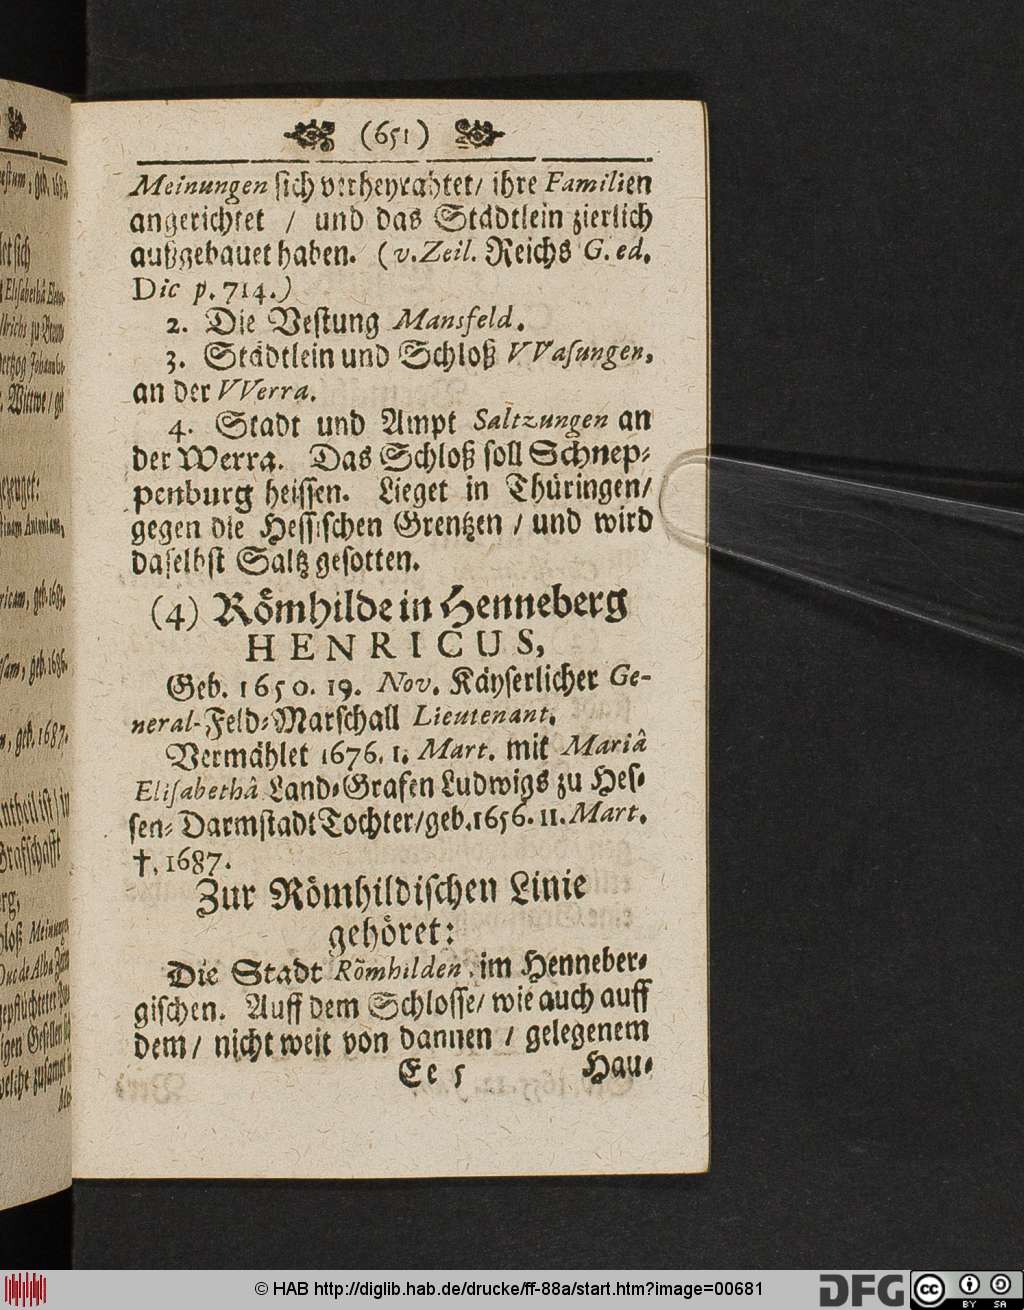 (651)
Meinungen sich verheyrahtet/ ihre Familien
angerichtet / und das Städtlein zierlich
außgebauet haben. (v. Zeil. Reichs G. ed.
Dic p. 714.)
2. Die Vestung Mansfeld.
3. Städtlein und Schloß VVasungen,
an der VVerra.
4. Stadt und Ampt Saltzungen an
der Werra. Das Schloß soll Schnep-
penburg heissen. Lieget in Thüringen/
gegen die Hessischen Grentzen / und wird
daselbst Saltz gesotten.
(4) Römhilde in Henneberg
HENRICUS,
Geb. 1650. 19. Nov. Käyserlicher Ge-
neral-Feld-Marschall Lieutenant.
Vermählet 1676. 1. Mart. mit Mariâ
Elisabethâ Land-Grafen Ludwigs zu Hes-
sen-Darmstadt Tochter/geb. 1656. 11. Mart.
†. 1687.
Zur Römhildischen Linie
gehöret:
Die Stadt Römhilden im Henneber-
gischen. Auff dem Schlosse/ wie auch auff
dem/ nicht weit von dannen / gelegenem
Ee 5 Hau-
© HAB http://diglib.hab.de/drucke/ff-88a/start.htm?image=00681
DFG
cc
BY SA